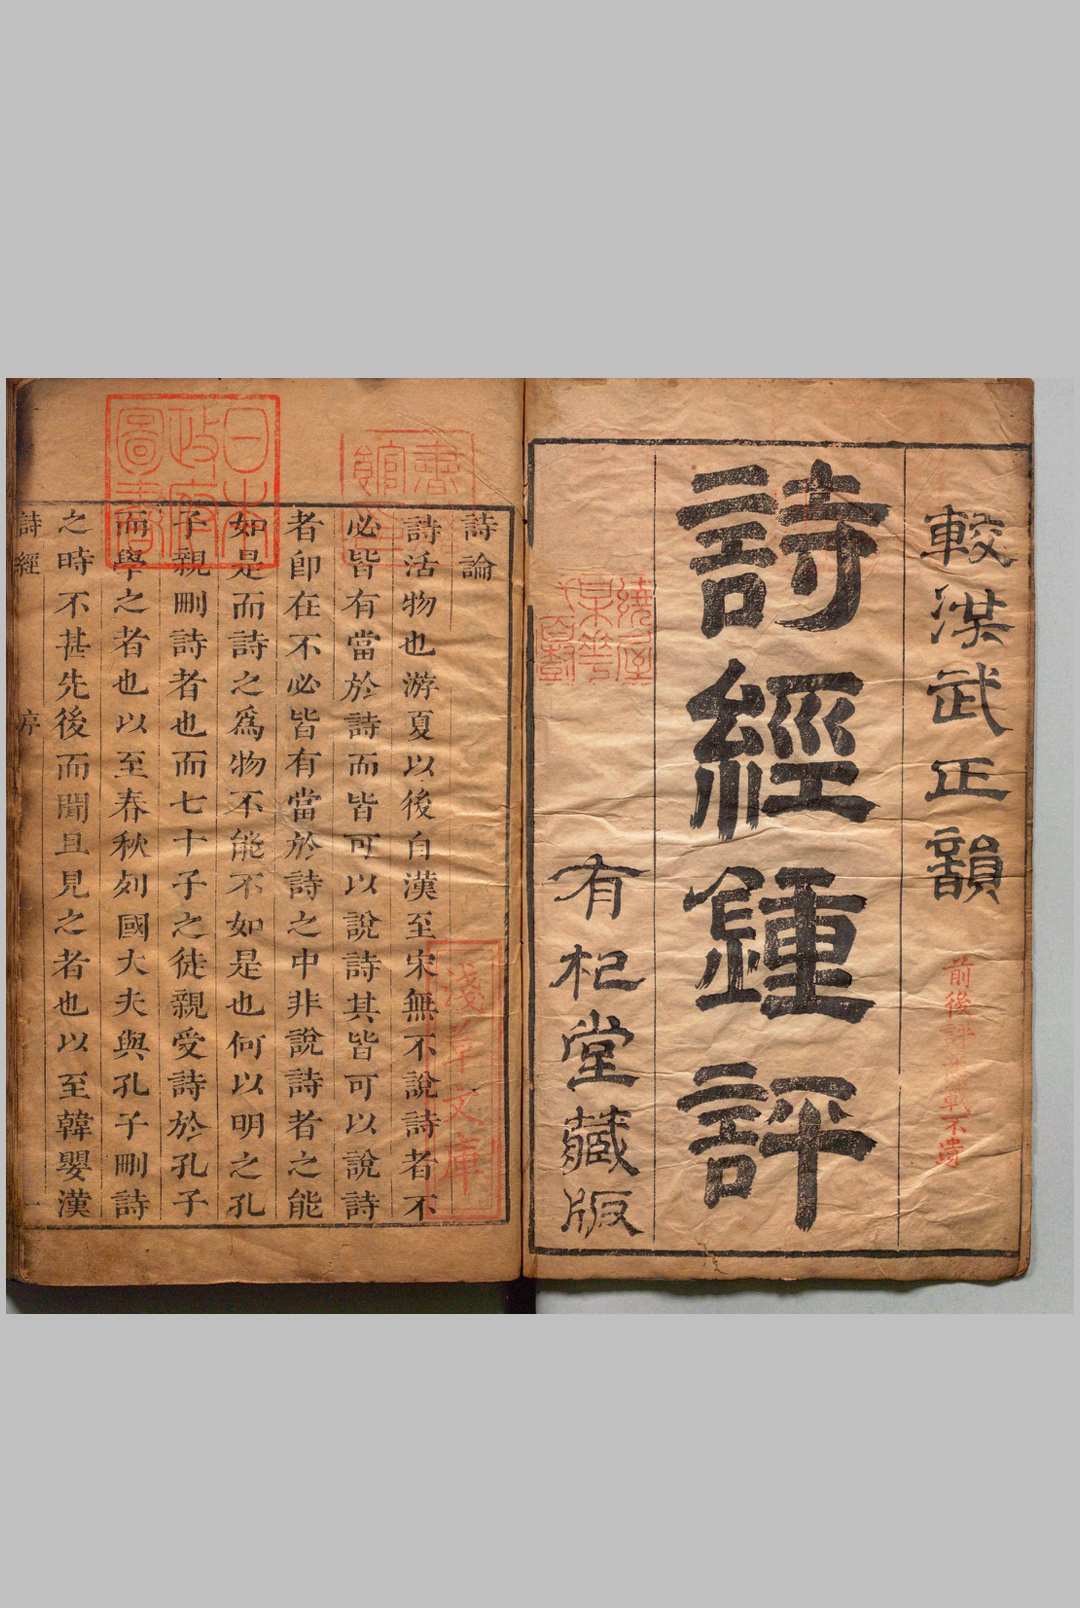 較洪武正韻
詩經鍾評
有杞堂藏版
詩論
詩活物也游夏以後自漢至宋無不說詩者不
必皆有當於詩而皆可以說詩其皆可以說詩
者卽在不必皆有當於詩之中非說詩者之能
如是而詩之爲物不能不如是也何以明之孔
子親刪詩者也而七十子之徒親受詩於孔子
而學之者也以至春秋列國大夫與孔子刪詩
之時不甚先後而聞且見之者也以至韓嬰漢
詩經 序 一
日本政府圖書
淺草文庫